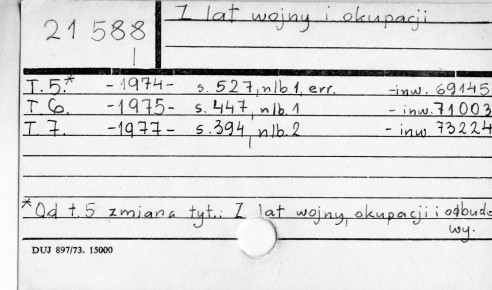 21 588
Z lat wojny i okupacji
T. 5.* -1974- s. 527, nlb 1, err. -inw. 69145
T 6. -1975- s. 447, nlb. 1 - inw. 71003
T 7. -1977- s. 394, nlb. 2 - inw. 73224
*Od t. 5 zmiana tyt.: Z lat wojny, okupacji i odbudo
wy.
DUJ 897/73. 15000